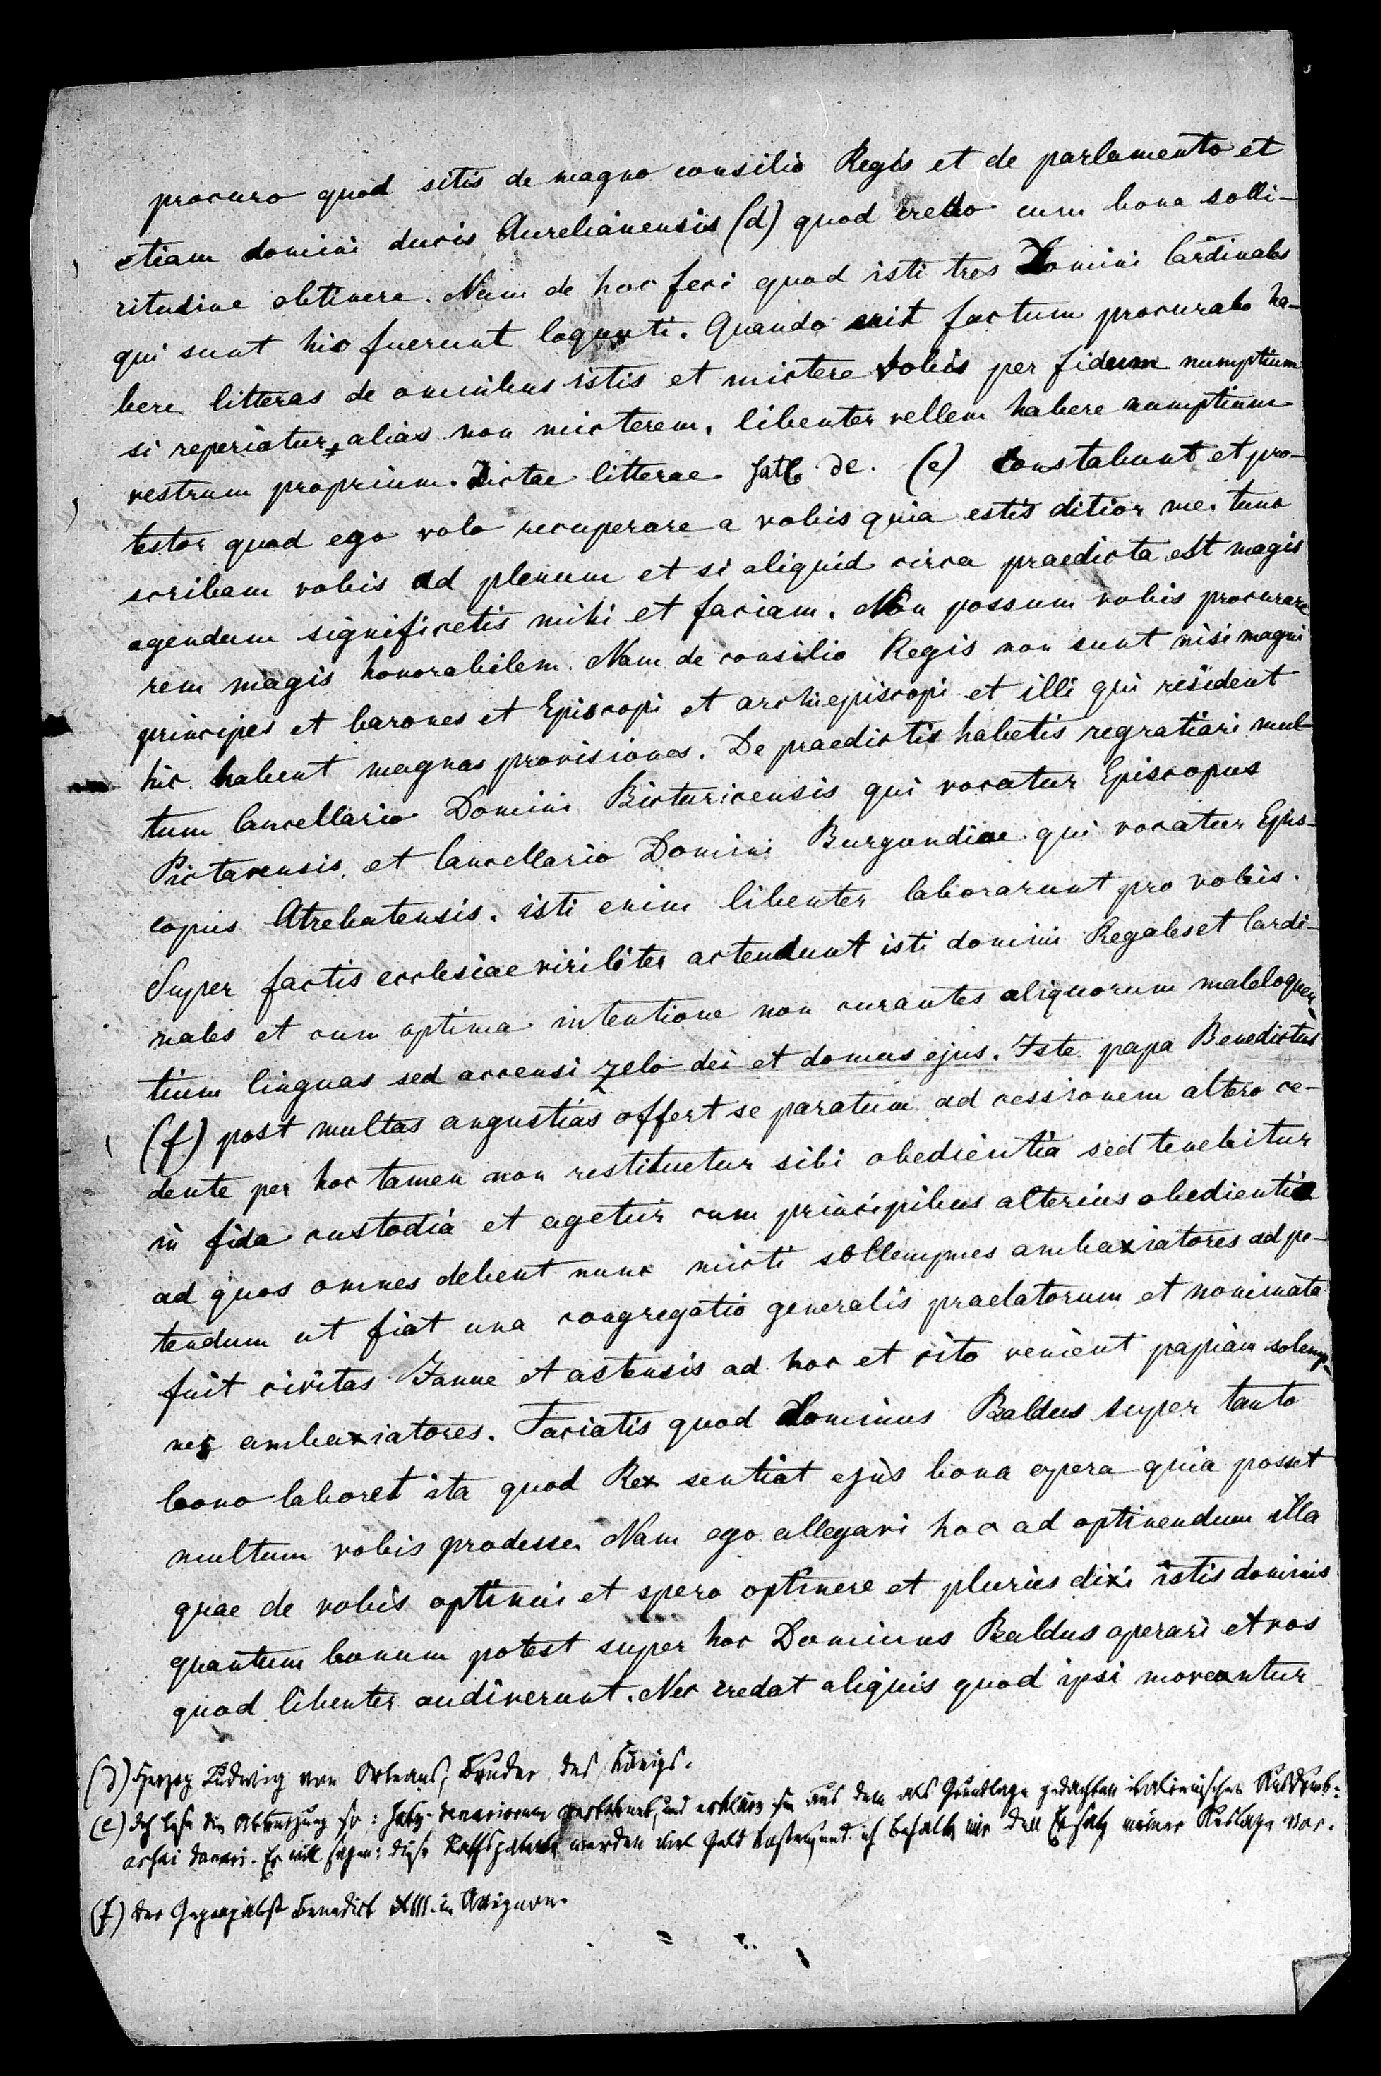 procuro quod sitis de magno consilio Regis et de parlamento et
etiam domini ducis Aurelianensis (d) quod credo cum bona solli-
citudine obtinere. Nam de hoc feci quod isti tres Domini Cardinales
qui sunt hic fuerunt loquuti. Quando erit factum procurabo ha-
bere litteras de omnibus istis et mictere vobis per fidum numptium
si reperiatur, alias non micterem. libenter vellem habere numptium
vestrum proprium. Dictae litterae satb de. (e) Constabunt et pro-
testor quod ego volo recuperare a vobis quia estis ditior me. tunc
scribam vobis ad plenum et si aliquid circa praedicta est magis
agendum significetis mihi et faciam. Non possum vobis procurare
rem magis honorabilem. Nam de consilio Regis non sunt nisi magni
principes et barones et Episcopi et archiepiscopi et illi qui resident
hic habent magnas provisiones. De praedictis habetis regratiari mul-
tum Cancellario Domini Bicturicensis qui vocatur Episcopus
Pictavensis. et Cancellario Domini Burgundiae qui vocatur Epis-
copus Atrebatensis. isti enim libenter laborarunt pro vobis.
Super factis ecclesiae viriliter actendunt isti domini Regales et Cardi-
nales et cum optima intentione non curantes aliquorum maleloquen-
tium linguas sed accensi zelo dei et domus ejus. Iste papa Benedictus
(f) post multas angustias offert se paratum ad cessionem altero ce-
dente per hoc tamen non restituetur sibi obedientia sed tenebitur
in fida custodia et agetur cum principibus alterius obedientiae
ad quos omnes debent nunc micti sollempnes ambaxiatores ad pe-
tendum ut fiat una congregatio generalis praelatorum et nominata
fuit civitas Janue et astensis ad hoc et cito venient papiam solemp-
nes ambaxiatores. Faciatis quod Dominus Baldus super tanto
bono laboret ita quod Rex sentiat ejus bona opera quia posset
multum vobis prodesse. Nam ego allegavi hoc ad optinendum illa
quae de vobis optinui et spero optinere et pluries dixi istis dominis
quantum bonum potest super hoc Dominus Baldus operari et vos
quod libenter audiverunt. Nec credat aliquis quod ipsi moveantur
(d) Herzog Ludwig von Orleans, Bruder des Königs.
(e) Ich lese die Abkürzung so: satis denariorum und erkläre sie aus dem als Grundlage gedachten italienischen Ausdruck:
assai denari. Er will sagen: diese werden viel Geld kosten, und ich behalte mir den Ersatz meiner Auslage vor.
(f) der Gegenpabst Benedict XIII. in Avignon.